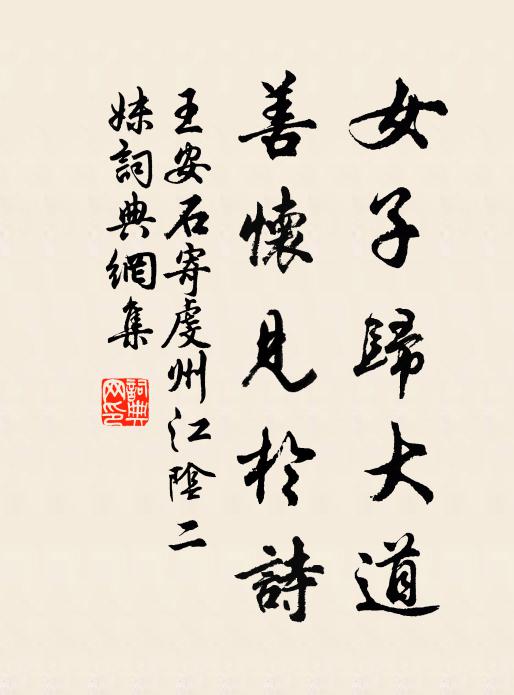 女子歸大道
善懷見於詩
王安石寄虔州江陰二
妹詞典網集
詞典
网印